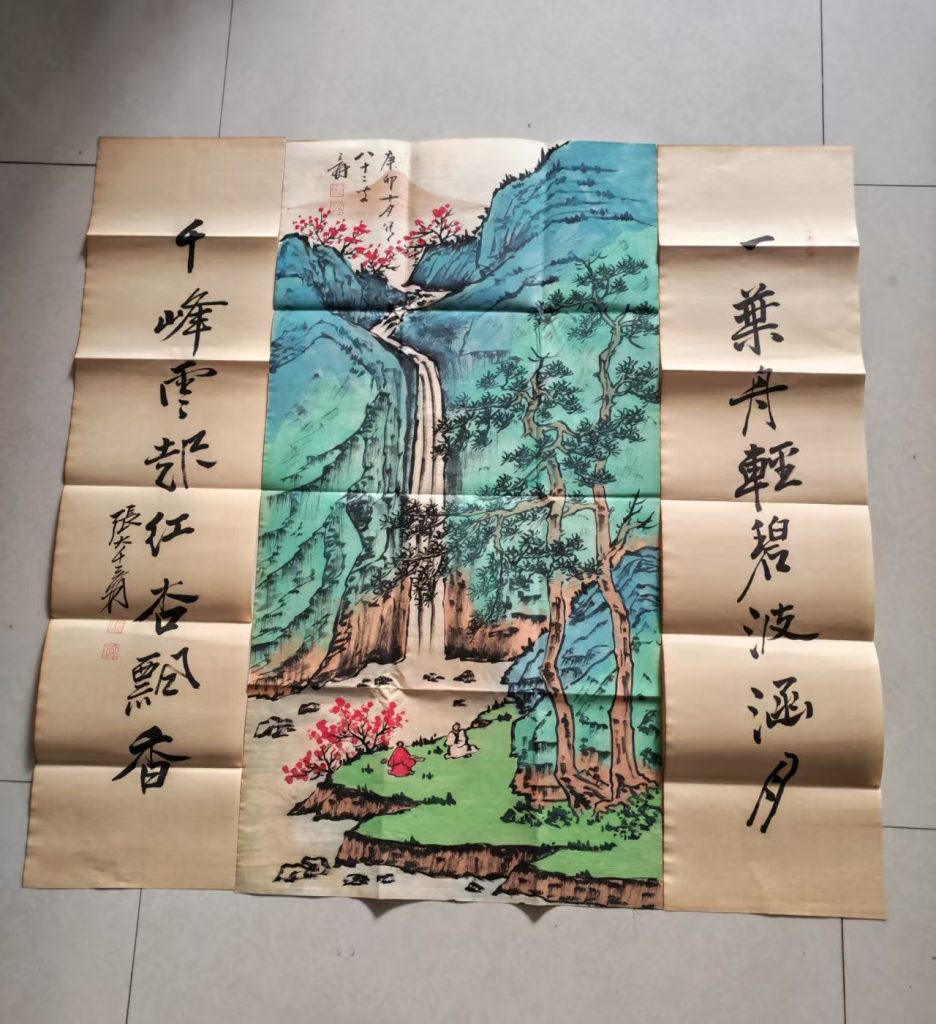 一葉舟輕碧波涵月
庚卯十月
八十二叟
千峰雲起红杏飄香
張大千爰